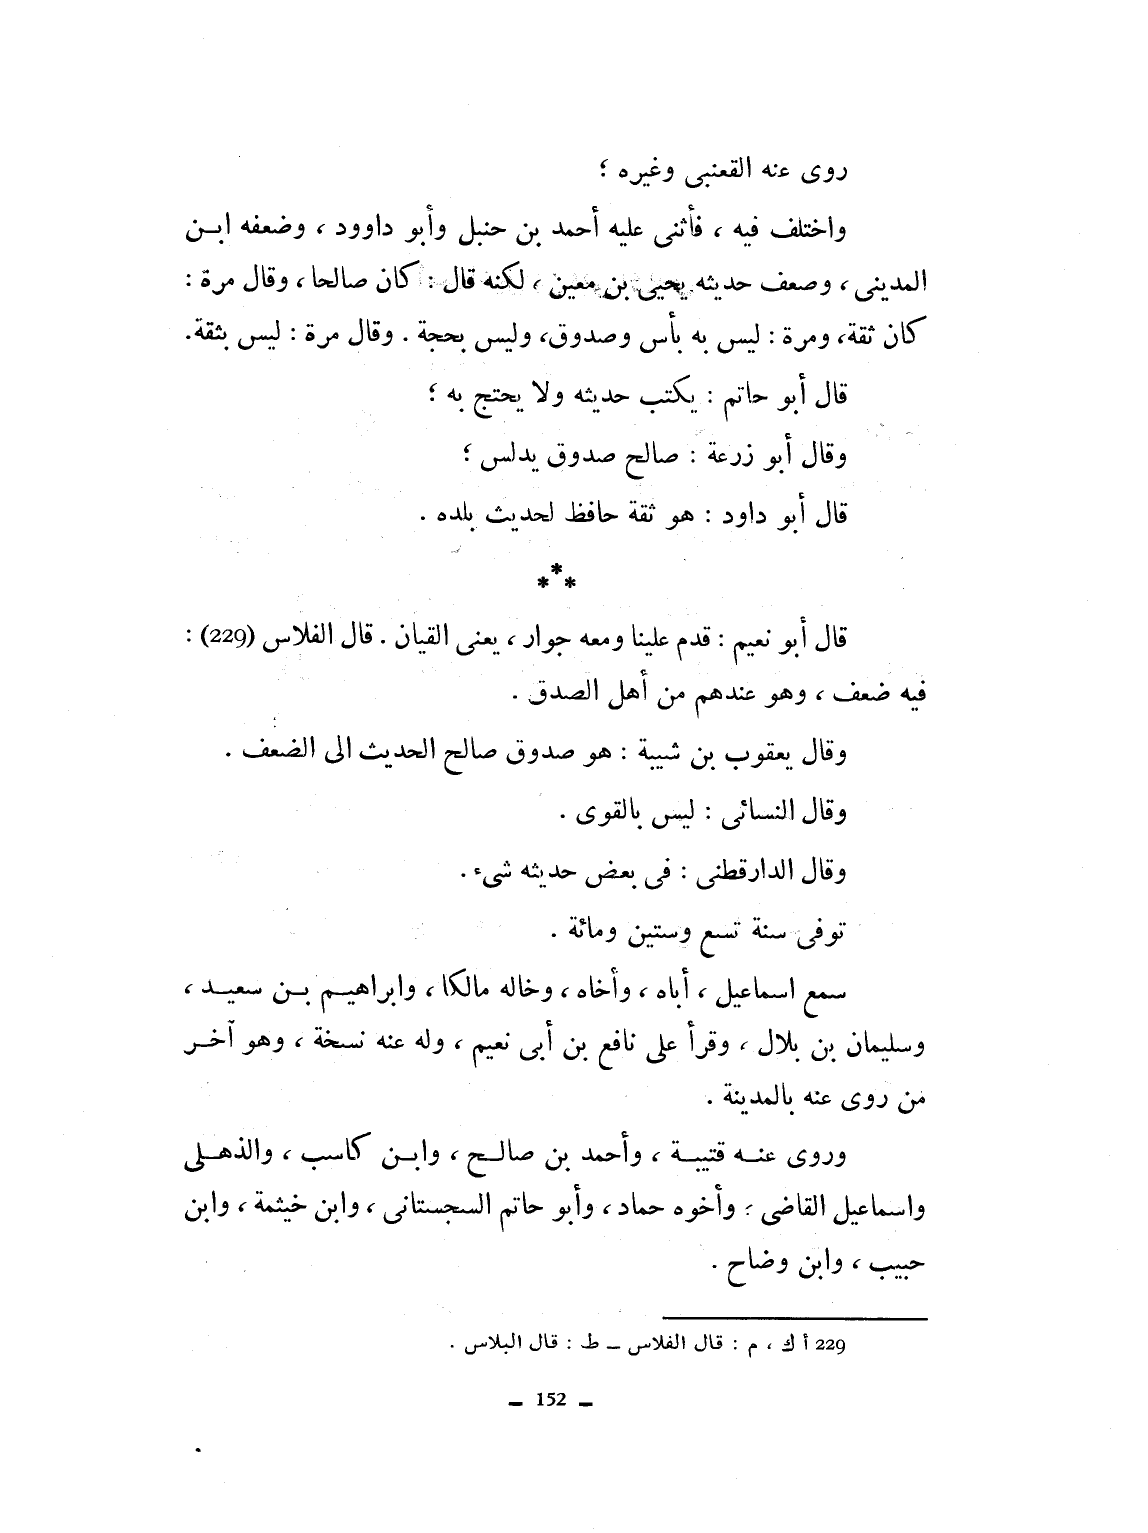 روى عنه القعنبى وغيره ؛
واختلف فيه ، فأثنى عليه أحمد بن حنبل وأبو داوود ، وضعفه ابن
المدينى ، وصعف حديثه يحيى بن معين ، لكنه قال : كان صالحا ، وقال مرة :
كان ثقة، ومرة : ليس به بأس وصدوق، وليس بحجة . وقال مرة : ليس بثقة.
قال أبو حاتم : يكتب حديثه ولا يحتج به ؛
وقال أبو زرعة : صالح صدوق يدلس ؛
قال أبو داود : هو ثقة حافظ لحديث بلده .
***
قال أبو نعيم : قدم علينا ومعه جوار ، يعنى القيان . قال الفلاس (229) :
فيه ضعف ، وهو عندهم من أهل الصدق .
وقال يعقوب بن شيبة : هو صدوق صالح الحديث الى الضعف .
وقال النسائى : ليس بالقوى .
وقال الدارقطنى : فى بعض حديثه شىء .
توفى سنة تسع وستين ومائة .
سمع اسماعيل ، أباه ، وأخاه ، وخاله مالكا ، وابراهيم بن سعيد ،
وسليمان بن بلال ، وقرأ على نافع بن أبى نعيم ، وله عنه نسخة ، وهو آخر
من روى عنه بالمدينة .
وروى عنه قتيبة ، وأحمد بن صالح ، وابن كاسب ، والذهلى
واسماعيل القاضى ؛ وأخوه حماد ، وأبو حاتم السجستانى ، وابن خيثمة ، وابن
حبيب ، وابن وضاح .
229 أ ك ، م : قال الفلاس ــ ط : قال البلاس .
ــ 152 ــ